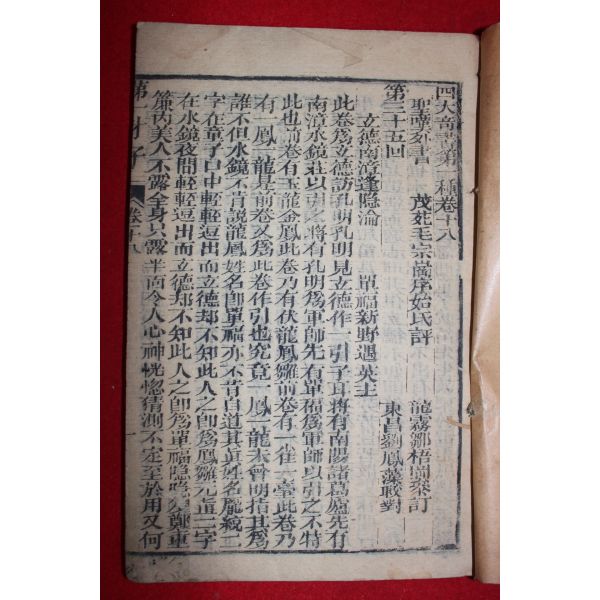 四大奇書第一種卷十八
聖嘆外書　茂苑毛宗崗序始氏評
龍霧鄒梧岡叅訂
東昌劉鳳藻較對
第三十五回
玄德南漳逢隐淪　單福新野遇英主
此卷爲玄德訪孔明孔明見玄德作一引子耳將有南陽諸葛廬先有
南漳水鏡莊以引之將有孔明爲軍師先有單福爲軍師以引之不特
此也前卷有玉龍金鳳此卷乃有伏龍鳳雛前卷有一雀一臺此卷乃
有一鳳一龍是前卷又爲此卷作引也究竟一鳳一龍未曾明指其爲
誰不但水鏡不肯説龍鳳姓名卽單福亦不肯自道其眞姓名龐統二
字在童子口中輕輕逗出而玄德却不知此人之卽爲鳳雛元直二字
在水鏡夜間輕輕逗出而玄德却不知此人之卽爲單福隐隐躍躍如
簾內美人不露全身只露半面令人心神恍惚猜測不定至於用又何
第一才子　卷十八　一